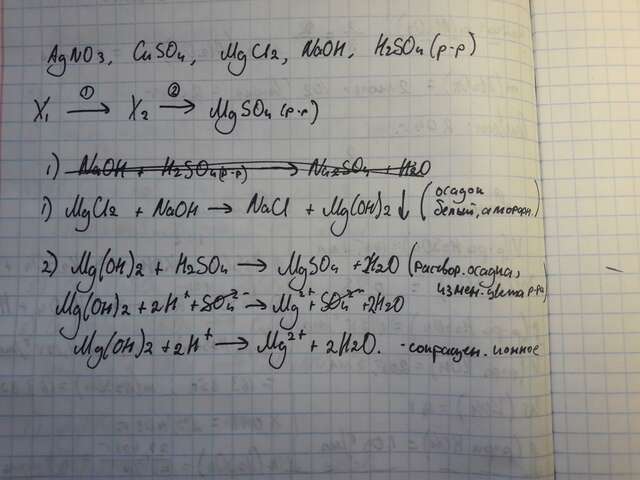 AgNO3, CuSO4, MgCl2, NaOH, H2SO4 (р-р)
X1 ①→ X2 ②→ MgSO4 (р-р)
1) NaOH + H2SO4 (р-р) → Na2SO4 + H2O
1) MgCl2 + NaOH → NaCl + Mg(OH)2 ↓ (осадок
белый, аморфн.)
2) Mg(OH)2 + H2SO4 → MgSO4 + H2O (раствор. осадка,
измен. цвета р-ра
Mg(OH)2 + 2H⁺ + SO4²⁻ → Mg²⁺ + SO4²⁻ + 2H2O
Mg(OH)2 + 2H⁺ → Mg²⁺ + 2H2O. - сокращен. ионное